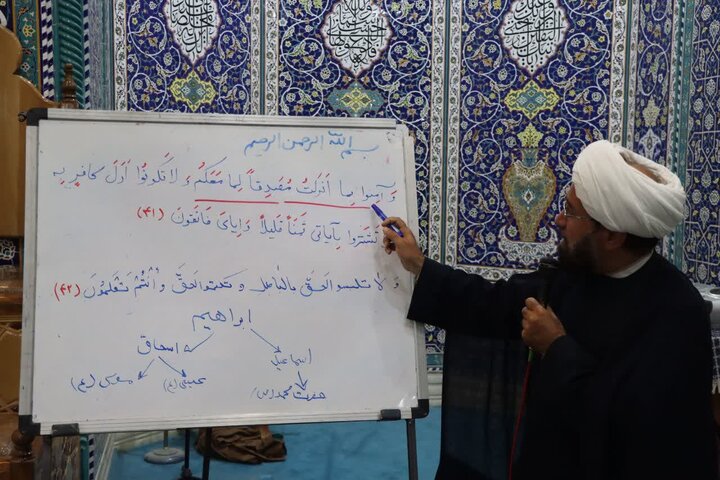 بسم الله الرحمن الرحیم
وَ آمِنوا بِما اَنزَلتُ مُصَدِقاً لِما مَعَکُم وَ لا تَکونُوا اَوَلَ کافِرٍ بِه
تَشتَروا بِآیاتی ثَمَناً قَلیلاً وَ اِیایَ فَاتقونَ (۴۱)
وَ لا تلبسوا الحَقَ بالباطل و تکتموا الحَقَ وَ اَنتُم تَعلَمُونَ (۴۲)
ابراهیم
اسماعیل اسحاق
حضرت محمد (ص) عیسی (ع) موسی (ع)